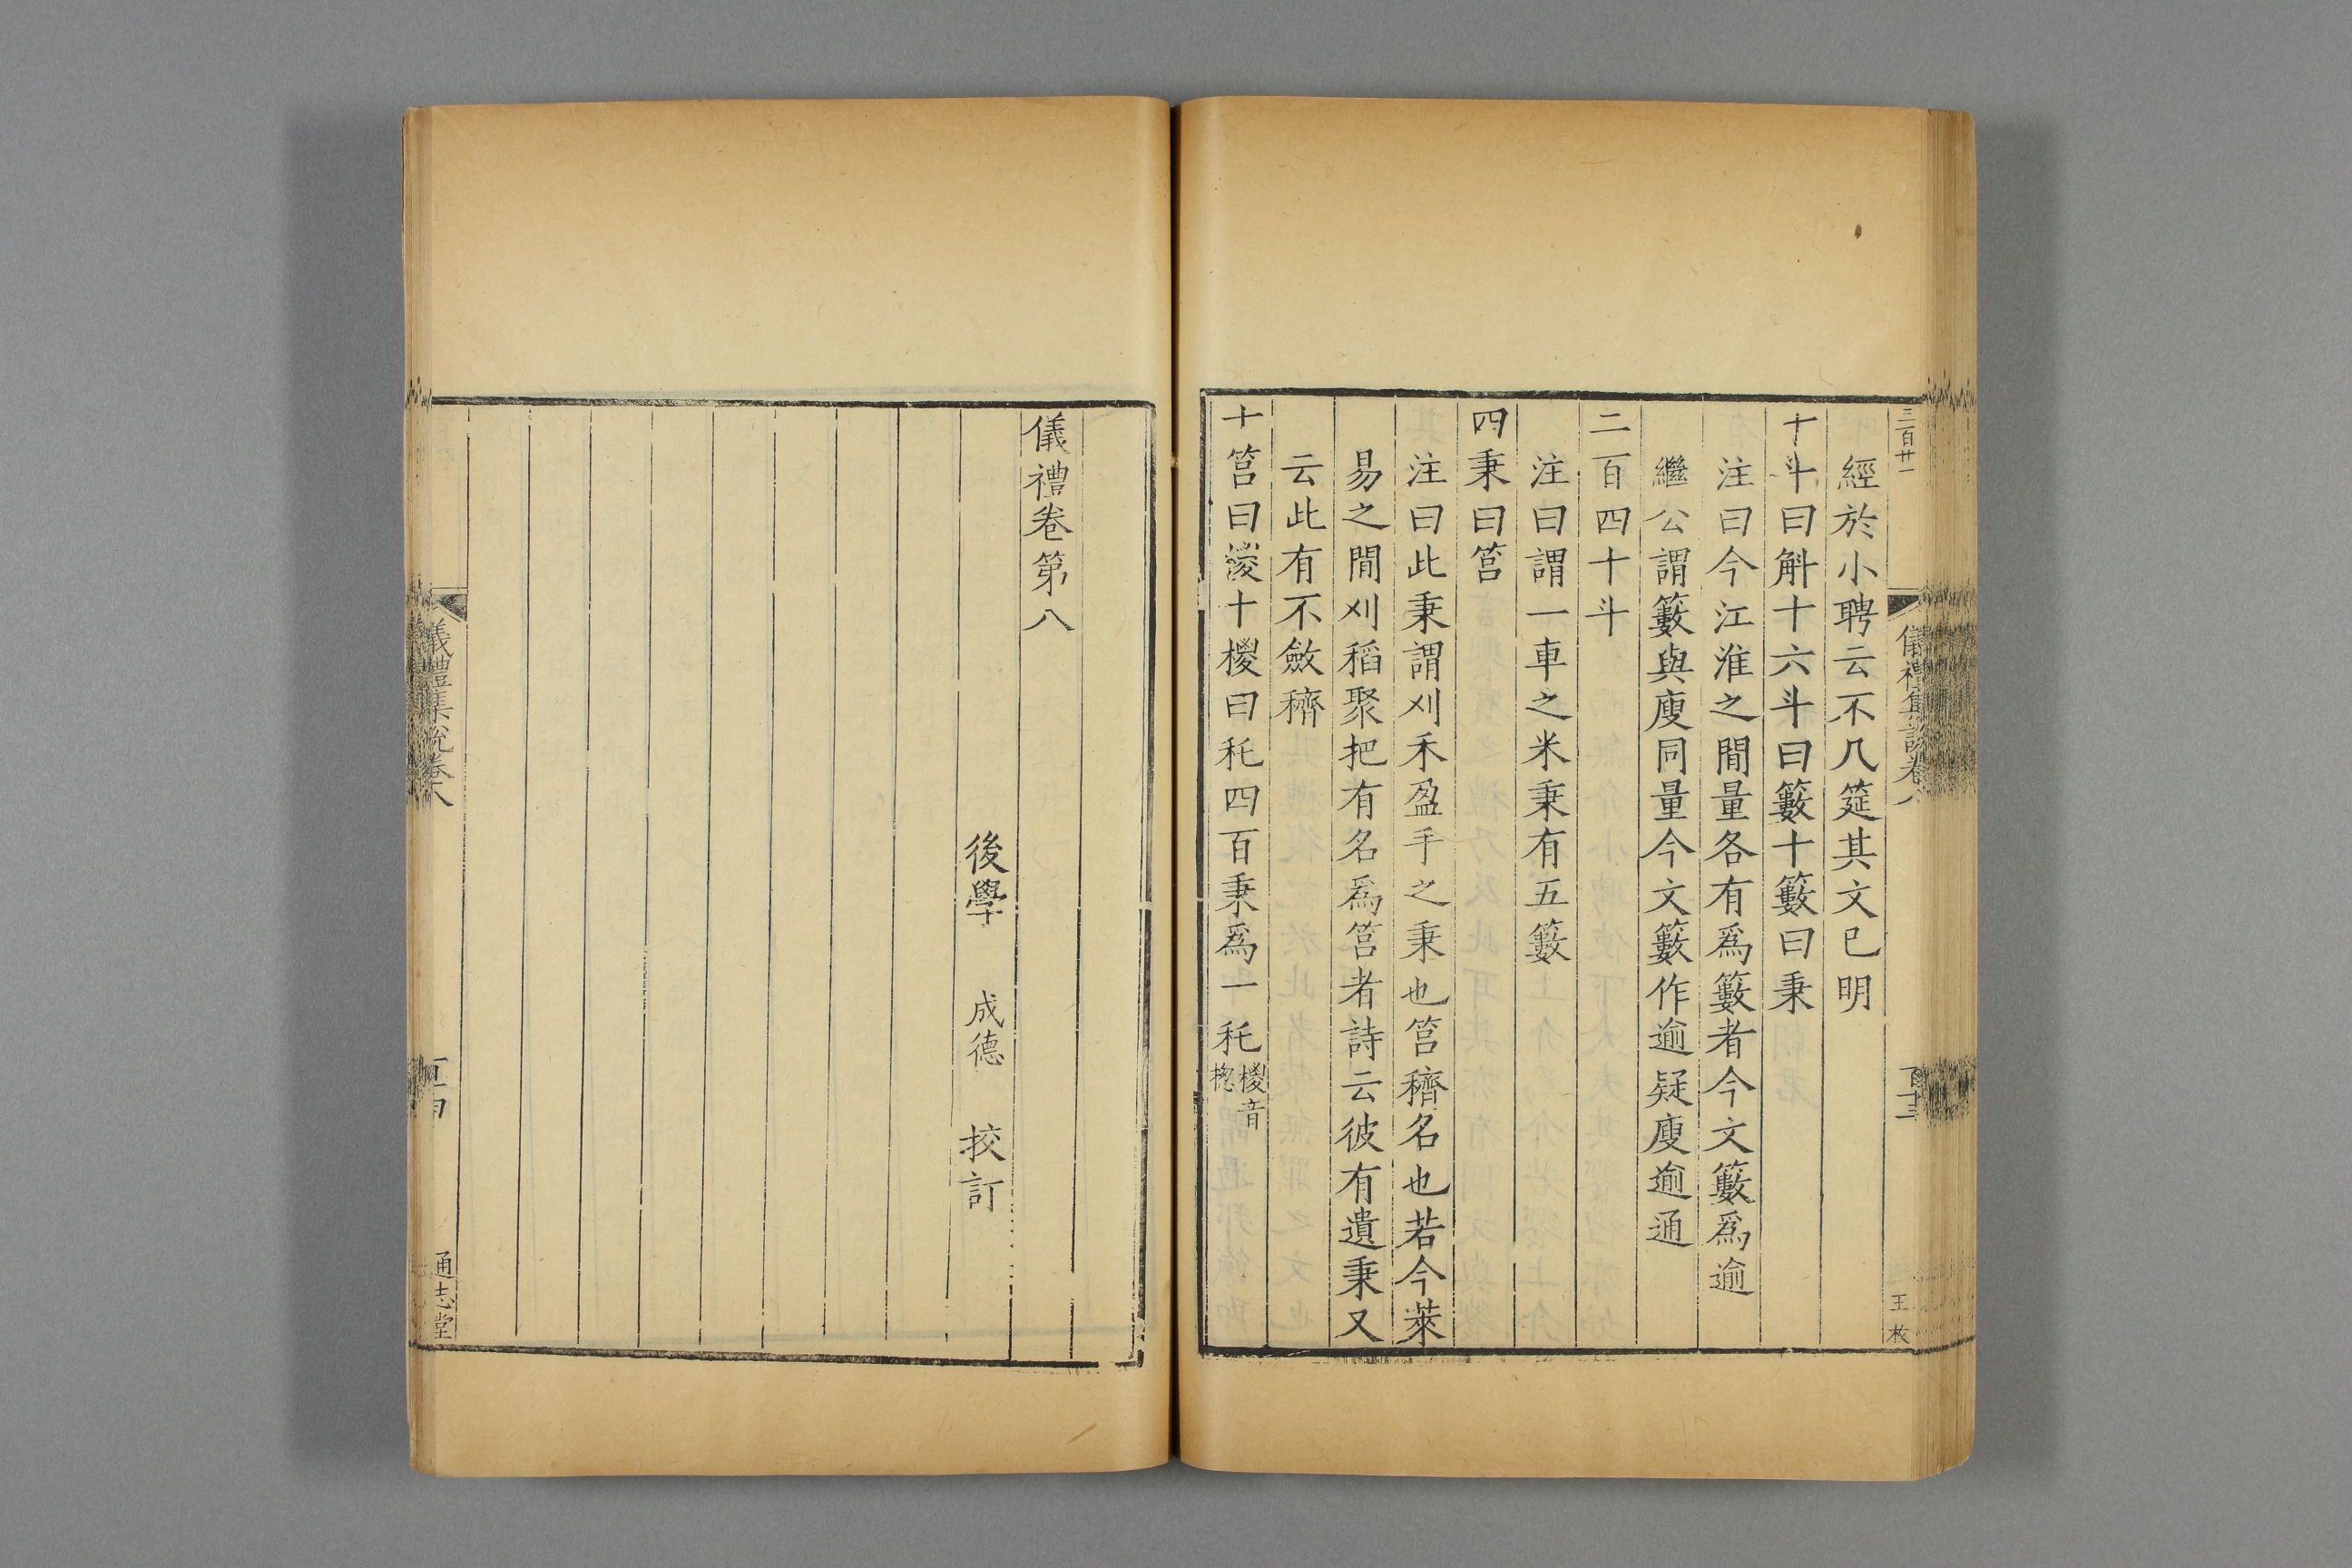 三百廿一
儀禮集說卷八
百十三
王枚
經於小聘云不几筵其文已明
十斗曰斛十六斗曰籔十籔曰秉
注曰今江淮之間量各有爲籔者今文籔爲逾
繼公謂籔與庾同量今文籔作逾疑庾逾通
二百四十斗
注曰謂一車之米秉有五籔
四秉曰筥
注曰此秉謂刈禾盈手之秉也筥穧名也若今萊
易之間刈稻聚把有名爲筥者詩云彼有遺秉又
云此有不斂穧
十筥曰稯十稯曰秅四百秉爲一秅稯音
揔
儀禮卷第八
後學 成德 挍訂
儀禮集說卷八
通志堂